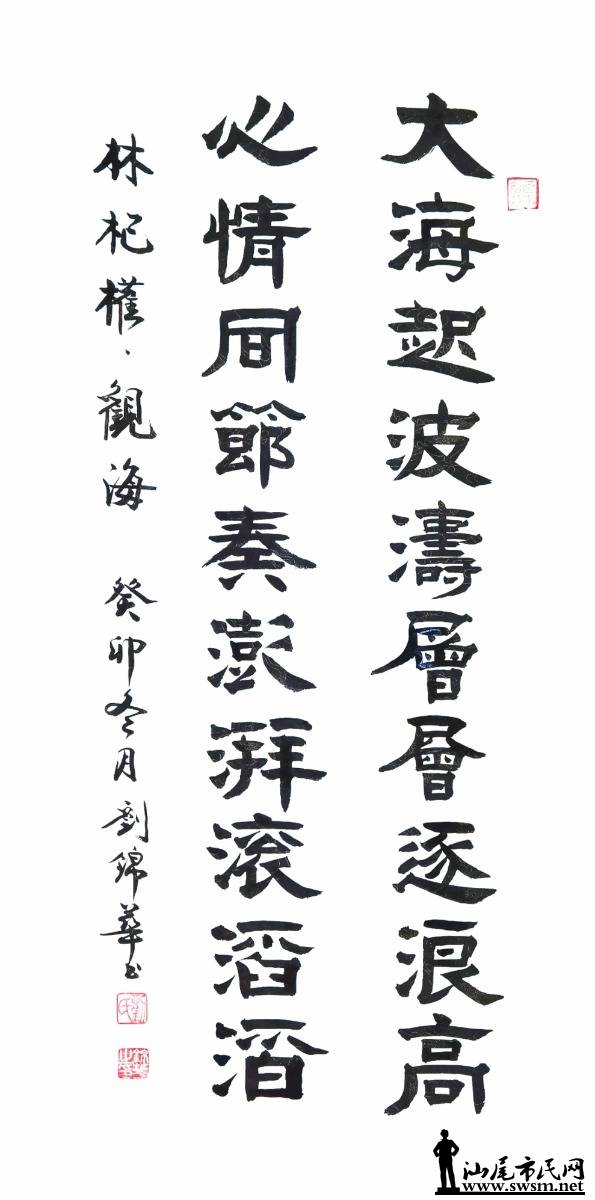 大海起波濤層層逐浪高
心情同節奏澎湃滚滔滔
林杞權、觀海 癸卯冬月劉錦華书
汕尾市民网
www.swsm.net